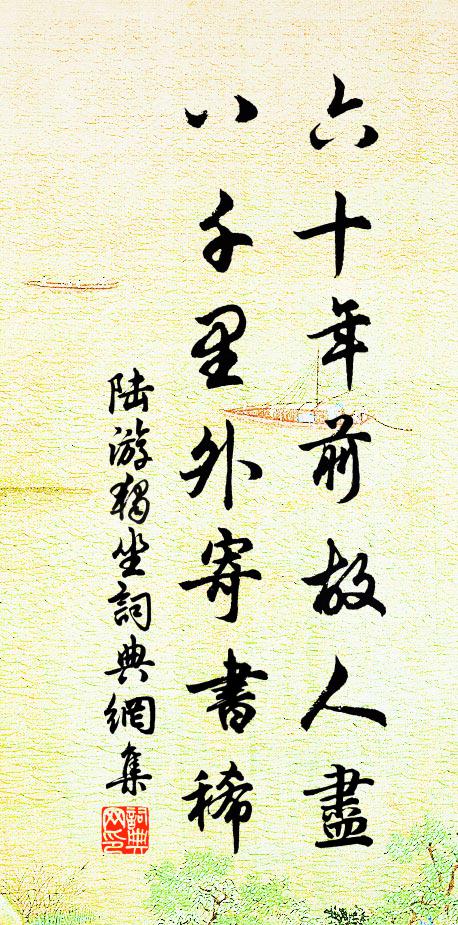 六十年前故人盡
八千里外寄書稀
陸游獨坐詞典網集
詞典網印